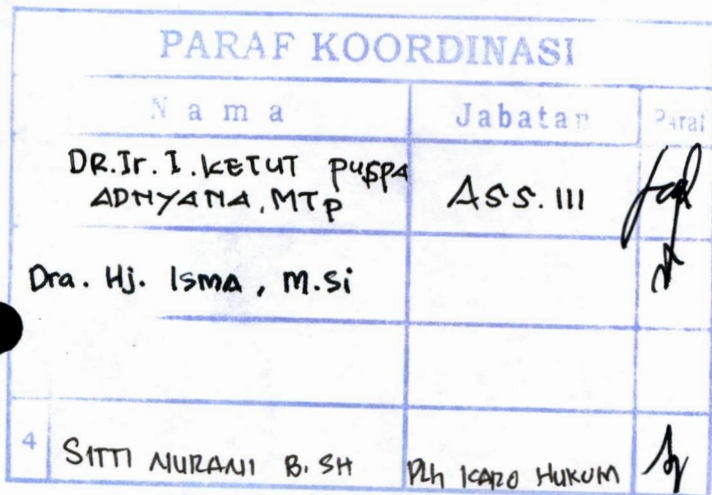 PARAF KOORDINASI
Nama Jabatan Paraf
DR.Ir. I. KETUT PUSPA
ADNYANA, MTP ASS. III
Dra. Hj. ISMA, M.Si
4 SITTI NURANI B. SH Plh KARO HUKUM